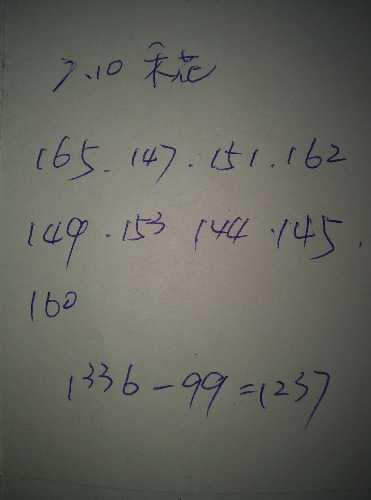 7.10 禾花
165.147.151.162
149.153 144.145.
160
1336-99=1237